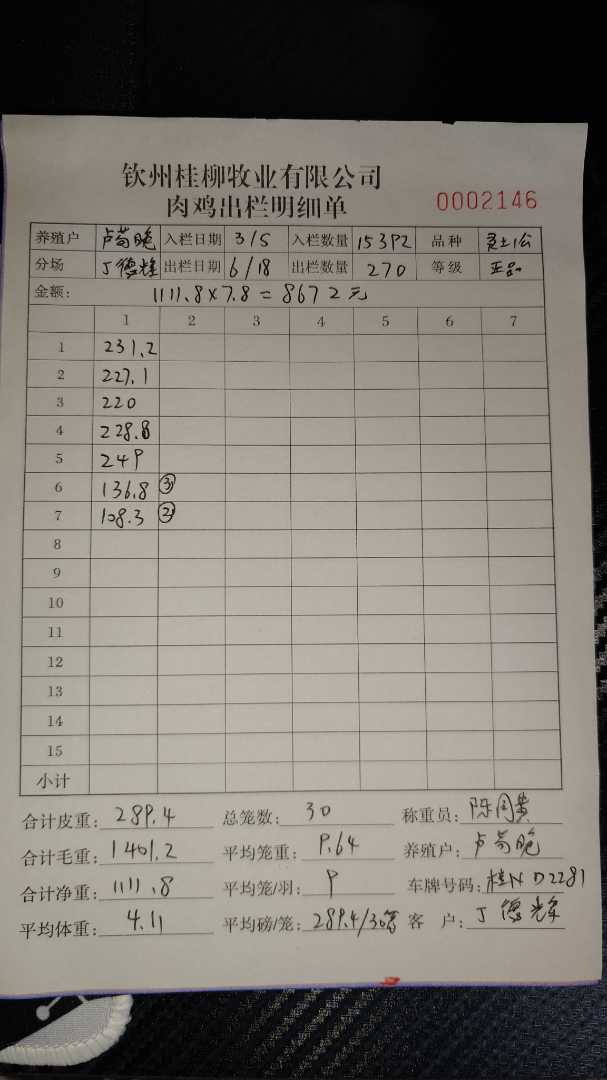 钦州桂柳牧业有限公司
肉鸡出栏明细单 0002146
养殖户 卢苟晚 入栏日期 3/5 入栏数量 15392 品种 灵土1公
分场 丁德辉 出栏日期 6/18 出栏数量 270 等级 正品
金额: 1111.8×7.8=8672元
1 2 3 4 5 6 7
1 231.2
2 227.1
3 220
4 228.8
5 249
6 136.8 ③
7 108.3 ②
8
9
10
11
12
13
14
15
小计
合计皮重: 289.4 总笼数: 30 称重员: 陈
合计毛重: 1401.2 平均笼重: 9.64 养殖户: 卢苟晚
合计净重: 1111.8 平均笼/羽: 9 车牌号码: 桂N D2281
平均体重: 4.11 平均磅/笼: 289.4/30 客户: 丁德辉